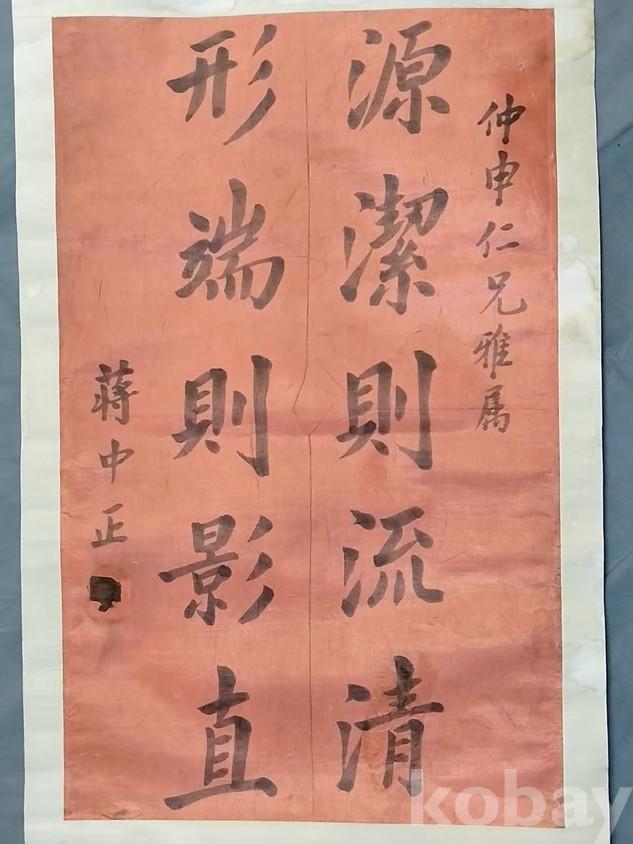 仲申仁兄雅属
源潔則流清
形端則影直
蒋中正
kobay